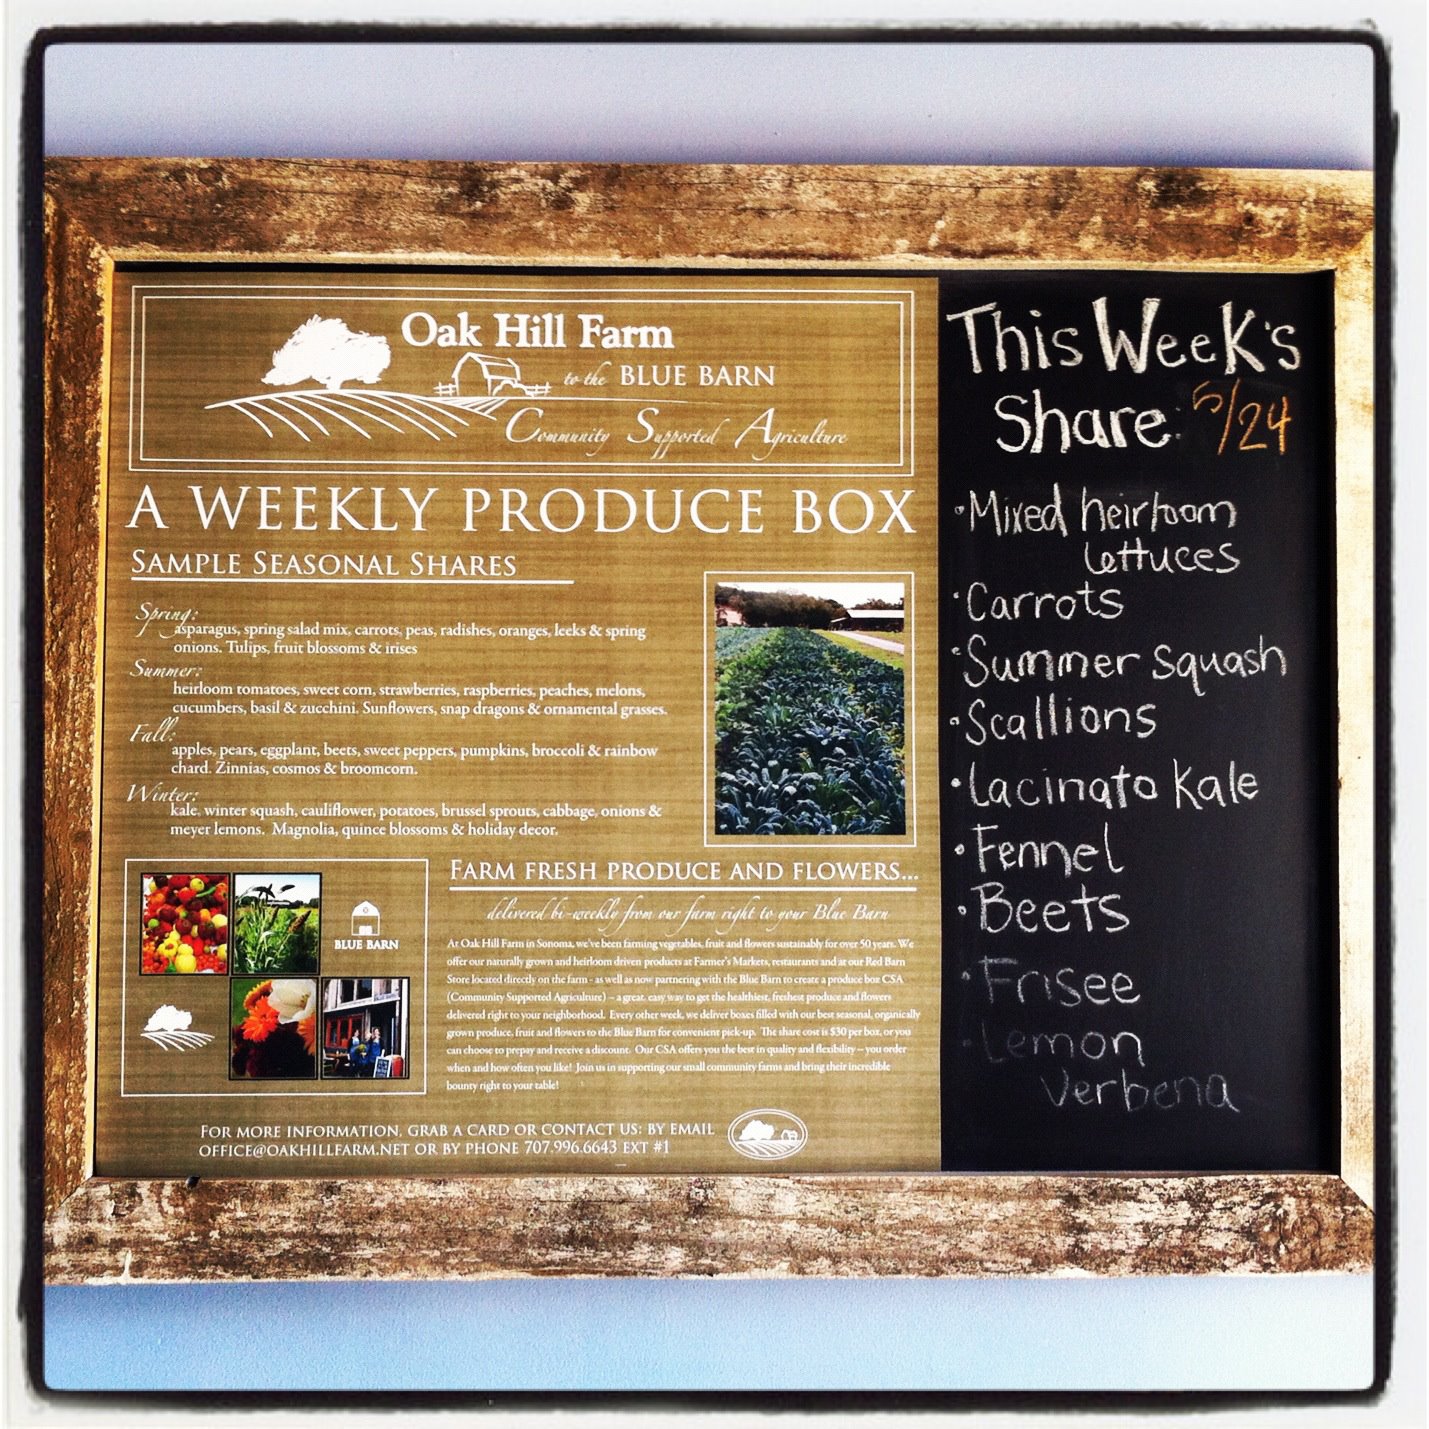 Oak Hill Farm
to the BLUE BARN
Community Supported Agriculture
A WEEKLY PRODUCE BOX
SAMPLE SEASONAL SHARES
Spring:
asparagus, spring salad mix, carrots, peas, radishes, oranges, leeks & spring
onions. Tulips, fruit blossoms & irises
Summer:
heirloom tomatoes, sweet corn, strawberries, raspberries, peaches, melons,
cucumbers, basil & zucchini. Sunflowers, snap dragons & ornamental grasses.
Fall:
apples, pears, eggplant, beets, sweet peppers, pumpkins, broccoli & rainbow
chard. Zinnias, cosmos & broomcorn.
Winter:
kale, winter squash, cauliflower, potatoes, brussel sprouts, cabbage, onions &
meyer lemons. Magnolia, quince blossoms & holiday decor.
BLUE BARN
FARM FRESH PRODUCE AND FLOWERS...
delivered bi-weekly from our farm right to your Blue Barn
At Oak Hill Farm in Sonoma, we've been farming vegetables, fruit and flowers sustainably for over 50 years. We
offer our naturally grown and heirloom driven products at Farmer's Markets, restaurants and at our Red Barn
Store located directly on the farm - as well as now partnering with the Blue Barn to create a produce box CSA
(Community Supported Agriculture) – a great, easy way to get the healthiest, freshest produce and flowers
delivered right to your neighborhood. Every other week, we deliver boxes filled with our best seasonal, organically
grown produce, fruit and flowers to the Blue Barn for convenient pick-up. The share cost is $30 per box, or you
can choose to prepay and receive a discount. Our CSA offers you the best in quality and flexibility – you order
when and how often you like! Join us in supporting our small community farms and bring their incredible
bounty right to your table!
FOR MORE INFORMATION, GRAB A CARD OR CONTACT US: BY EMAIL
OFFICE@OAKHILLFARM.NET OR BY PHONE 707.996.6643 EXT #1
This Week's
Share: 5/24
• Mixed heirloom
lettuces
• Carrots
• Summer Squash
• Scallions
• Lacinato Kale
• Fennel
• Beets
• Frisee
• Lemon
Verbena